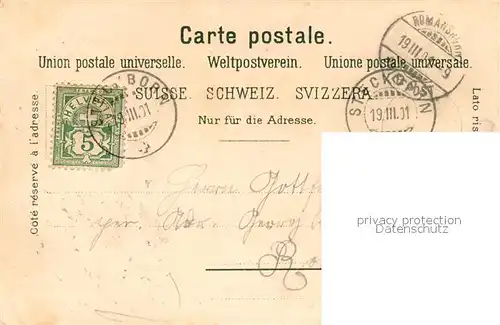 Carte postale.
Union postale universelle. Weltpostverein. Unione postale universale.
SUISSE. SCHWEIZ. SVIZZERA.
Nur für die Adresse.
Côté réservé à l'adresse.
Lato ris
HELVETIA
5
19.III.01
19.III.01
ROMANSHORN
19.III.
Herrn
Georg
privacy protection
Datenschutz